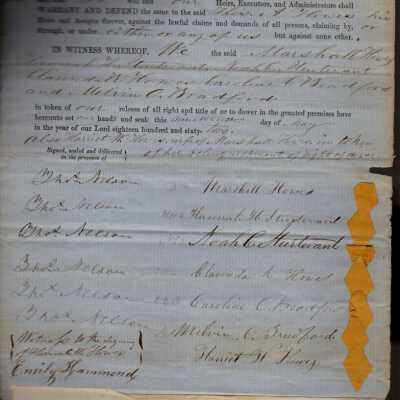 Heirs, Executors, and Administrators shall
WARRANT AND DEFEND the same to the said Howes his
Heirs and Assigns forever, against the lawful claims and demands of all persons, claiming by,
through, or under either or any of us but against none other.
IN WITNESS WHEREOF, We the said Marshall Howes
Caroline C Bradford
and Melvin C. Bradford
in token of our release of all right and title of or to dower in the granted premises have
hereunto set our hand and seal this day of May
in the year of our Lord eighteen hundred and sixty-
also Harriet W. Howes wife of Marshall Howes in token
of her relinquishment of right of dower
Signed, sealed and delivered
in the presence of
Thos. Nelson Marshall Howes
Thos. Nelson Hannah H Sturtevant
Thos. Nelson Noah C Sturtevant
Thos. Nelson Howes
Thos. Nelson Caroline C. Bradford
Thos. Nelson Melvin C. Bradford
Witness to the signing
of Harriet W. Howes
Harriet W Howes
Emily Hammond